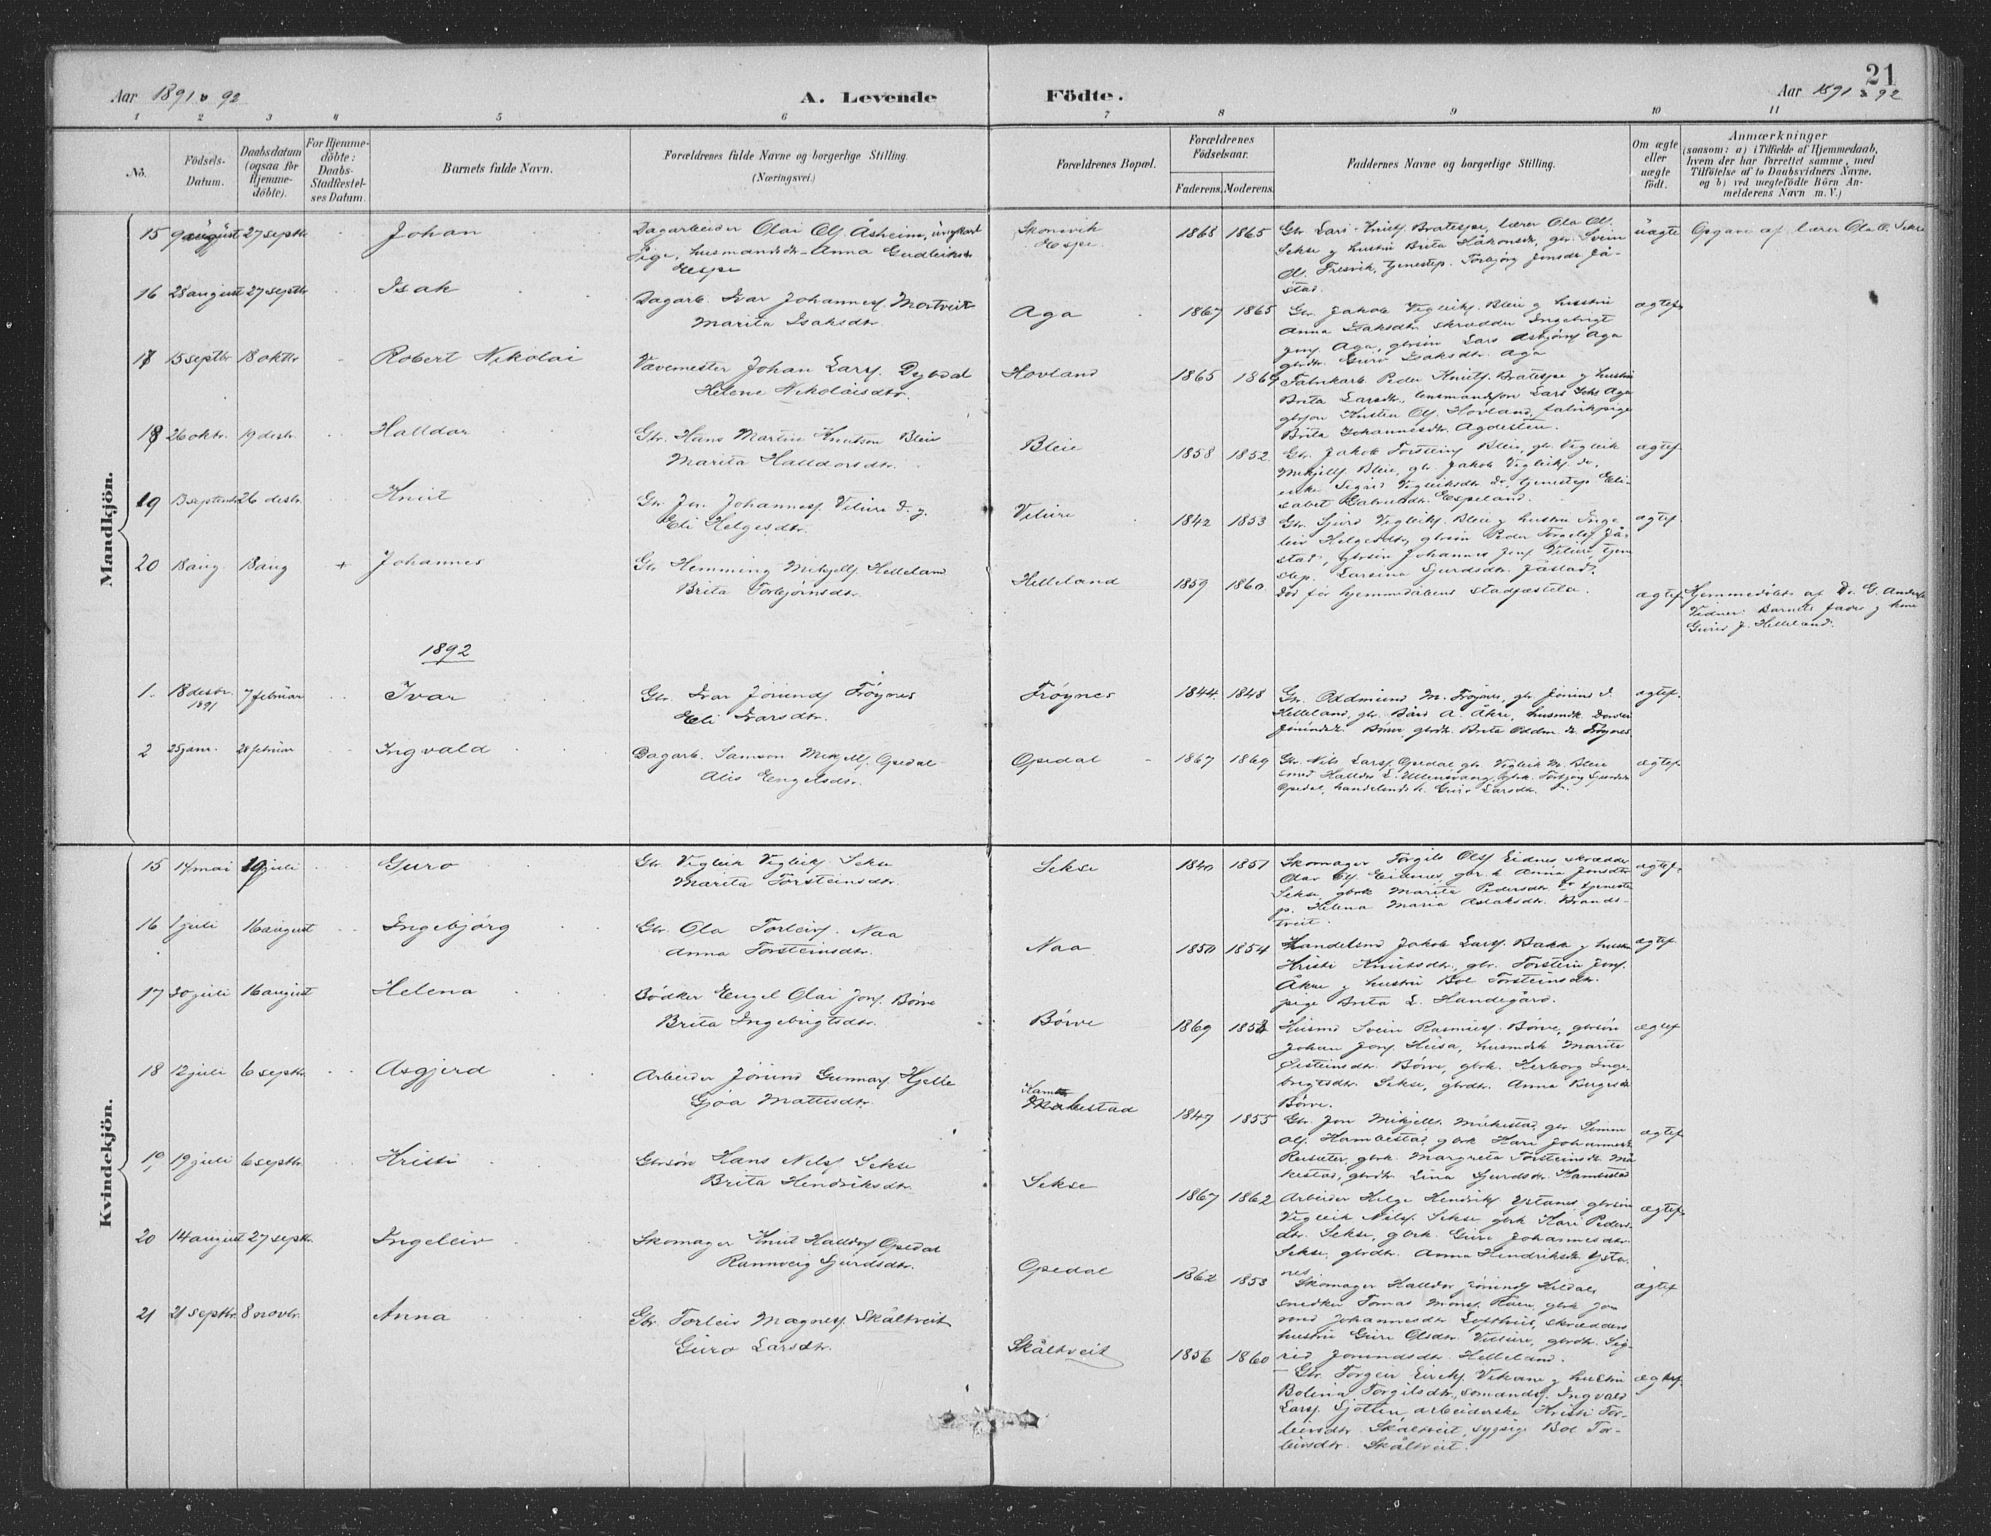 21
Aar 1891 & 92
A. Levende Födte.
Aar 1891 & 92
1 2 3 4 5 6 7 8 9 10 11
No.
Födsels-
Datum.
Daabsdatum
(ogsaa for
Hjemme-
döbte).
For Hjemme-
döbte:
Daabs-
Stadfæstel-
ses Datum.
Barnets fulde Navn.
Forældrenes fulde Navne og borgerlige Stilling.
(Næringsvei.)
Forældrenes Bopæl.
Forældrenes
Födselsaar.
Faderens. Moderens.
Faddernes Navne og borgerlige Stilling.
Om ægte
eller
uægte
födt.
Anmærkninger
(saasom: a) i Tilfælde af Hjemmedaab,
hvem der har forrettet samme, med
Tilföielse af to Daabsvidners Navne,
og b) ved uægtefödte Börn An-
melderens Navn m. V.)
Mandkjön.
15 9 august 27 septbr Johan
Dagarbeider Olai Ols. Åsheim, ungkarl
Pige, husmandsdtr. Anna Gudleiksdtr
Espe
Skonevik
Espe
1868 1865
Gbr. Lars Knuts. Bratespe, lærer Ola Ols.
Sekse y hustru Brita Håkonsdtr, gbr. Svein
Ols. Fresvik, tjenestep. Torbjørg Jonsdr. Jå-
stad.
uægte
Opgave af lærer Ola O. Sekse
16 28 august 27 septbr Isak
Dagarb. Ivar Johanness. Mortveit
Marita Isaksdtr.
Aga
1867 1865
Gbr. Jakob Vigleiks. Bleie y hustru
Anna Isaksdtr skrædder Ingebrigt
Jons. Aga, gbrsøn Lars Asbjørns Aga
gbrdtr. Guro Isaksdtr. Aga
ægtef.
17 15 septbr 18 oktbr Robert Nikolai
Vævemester Johan Lars. Dybdal
Helene Nikolaisdtr.
Hovland
1865 1869
Fabrikarb. Peder Knuts. Bratespe y hustru
Brita Larsdtr., lensmandsøn Lars Aga
gbrsøn Knsten Ols. Hovland, fabrikpige
Brita Johannesdtr. Agdestein.
18 26 oktr. 19 desbr. Halldor
Gbr. Hans Martin Knutson Bleie
Marita Halldorsdtr.
Bleie
1858 1852
Gbr. Jakob Torsteins Bleie, gbr. Vigleik
Mikjells. Bleie, gbr Jakob Vigleiks. do,
enke Sigrid Vigleiksdtr. do, tjenestep. Eli-
sabet Espeland.
ægtef.
19 13 septembr 26 desbr. Knut
Gbr. Jon Johanness. Vilure d. y.
Eli Helgesdtr.
Vilure
1842 1853
Gbr. Sjurd Vigleiks. Bleie y hustru Inge
leiv Helgesdtr, gbrsøn Peder Torgils. Jå-
stad, gbrsøn Johannes Jons. Vilure, tjene
step. Larsina Sjurdsdtr. Jåstad.
ægtef.
20 18 aug. 18 aug + Johannes
Gbr. Hemming Mikjells. Helleland
Brita Torbjørnsdtr.
Helleland
1859 1860
Død før hjemmedaabens stadfæstelse.
ægtef.
Hjemmedøbt af Dr. G. Anders
Vidner: Barnets fader y kone
Guru J. Helleland.
1892
1. 18 desbr. 1891 7 februar Ivar
Gbr. Ivar Jørunds Frøynes
Eli Ivarsdtr.
Frøynes
1844 1848
Gbr. Oddmund M. Frøynes, gbr. Jørund I.
Helleland, gbr. Bård A. Åkre, husmdk. Dordei
Jørundsdtr. Børve, gbrdtr. Brita Oddm. dtr. Frøynes
ægtef.
2 25 janr. 28 februar Ingvald
Dagarb. Samson Mikjells. Opedal
Alis Engelsdtr.
Opedal
1867 1869
Gbr. Nils Lars. Opedal gbr. Vigleik M. Bleie
smed Halldor L. Ullensvang, gbrk. Torbjørg Sjursdtr
Opedal, handelsmdsk. Guro Larsdtr.
ægtef.
Kvindekjön.
15 14 mai 19 juli Guro
Gbr. Vigleik Vigleiks. Sekse
Marita Torsteinsdtr.
Sekse
1840 1851
Skomager Torgils Ols. Eidnes, skrædder
Olav Ols. Eidnes, gbr.k. Anna Jonsdtr.
Sekse, gbrk Marita Pedersdtr. do tjeneste
p. Helena Maria Aslaksdtr. Brands-
tveit.
ægtef.
16 1 juli 16 august Ingebjörg
Gbr. Ola Torleivs. Naa
Anna Torsteinsdtr.
Naa
1850 1854
Handelsmd Jakob Lars. Bakke y hustru
Kristi Knutsdtr., gbr. Torstein Jons.
Åkre y hustru Bol Torsteinsdtr.
pige Brita L. Handegård.
ægtef.
17 30 juli 16 august Helena
Bødker Engel Olai Jons. Börve
Brita Ingebrigtsdtr.
Börve
1869 1858
Husmd Svein Rasmus. Börve, gbrsön
Johan Jons. Husa, husmdk Marita
Eisteinsdtr. Börve, gbrk. Herborg Inge-
brigtsdtr. Sekse, gbrdtr. Anna Bergesdtr
Börve.
ægtef
18 12 juli 6 septbr. Asgjerd
Arbeider Jörund Gunnars. Hjelle
Gjoa Mattisdtr.
Måkestad
1847 1855
Gbr. Jon Mikjells. Måkestad, gbr. Simon
Ols. Hambestad, gbrk Kari Johannesdtr
Reisæter, gbrk. Margreta Torsteinsdtr. Må
kestad, gbrdtr. Lina Sjurdsdtr. Hambestad
ægtef.
19 19 juli 6 septbr. Kristi
Gbrsön Hans Nils. Sekse
Brita Hendriksdtr.
Sekse
1867 1862
Arbeider Helge Hendriks Ystanes, gbrsön
Vigleik Nils. Sekse gbrk Kari Peders-
dtr. Sekse, gbrk. Guro Johannesdtr.
Sekse, gbrdtr. Anna Hendriksdtr Ysta-
nes.
ægtef.
20 14 august 27 septbr. Ingeleiv
Skomager Knut Halldors Opedal
Rannveig Sjurdsdtr.
Opedal
1862 1853
Skomager Halldor Jörunds Hildal,
snedker Tomas Måns.
Johannesdtr Lofthus, skrædder
hustru Guro Olsdtr. Vilure, gbrdtr. Sig-
rid Jörundsdtr. Helleland.
ægtef
21 21 septbr. 8 novbr. Anna
Gbr. Torleiv Magnes. Skåltveit
Guro Larsdtr.
Skåltveit
1856 1860
Gbr. Torgeir Eiriks. Vikane y hustru
Bolena Torgilsdtr., sömands. Ingvald
Lars. Sjötten, arbeiderske Kristi Tor-
leivsdtr. Skåltveit, sypige Bol Tor-
leivsdtr. Skåltveit.
ægtef.